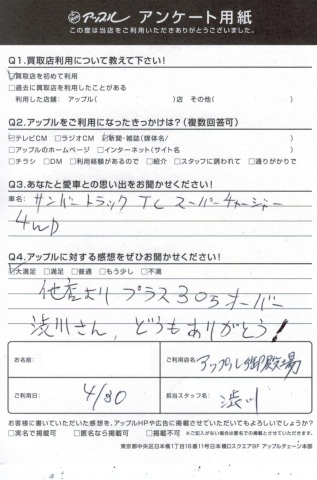 アップル アンケート用紙
この度は当店をご利用いただきありがとうございました。
Q1.買取店利用について教えて下さい!
☑買取店を初めて利用
□過去に買取店を利用したことがある
利用した店舗: アップル( )店 その他( )
Q2.アップルをご利用になったきっかけは?(複数回答可)
□テレビCM □ラジオCM ☑新聞・雑誌(媒体名/ )
□アップルのホームページ □インターネット(サイト名 )
□チラシ □DM □利用経験があるので □紹介 □スタッフに誘われて □通りがかりで
Q3.あなたと愛車との思い出をお聞かせください!
車名: サンバートラック TC スーパーチャージャー
4WD
Q4.アップルに対する感想をぜひお聞かせください!
☑大満足 □満足 □普通 □もう少し □不満
他店より プラス305オーバー
渋川さん、どうもありがとう!
お名前:
ご利用店名: アップル御殿場
ご利用日: 4/30
担当スタッフ名: 渋川
お客様に書いていただいた感想を、アップルHPや広告に掲載させていただいてもよろしいでしょうか?
□実名で掲載可 □匿名なら掲載可 □掲載不可 ※ご記入がない場合は匿名での掲載とさせていただきます。
東京都中央区日本橋1丁目16番11号日本橋Dスクエア9F アップルチェーン本部